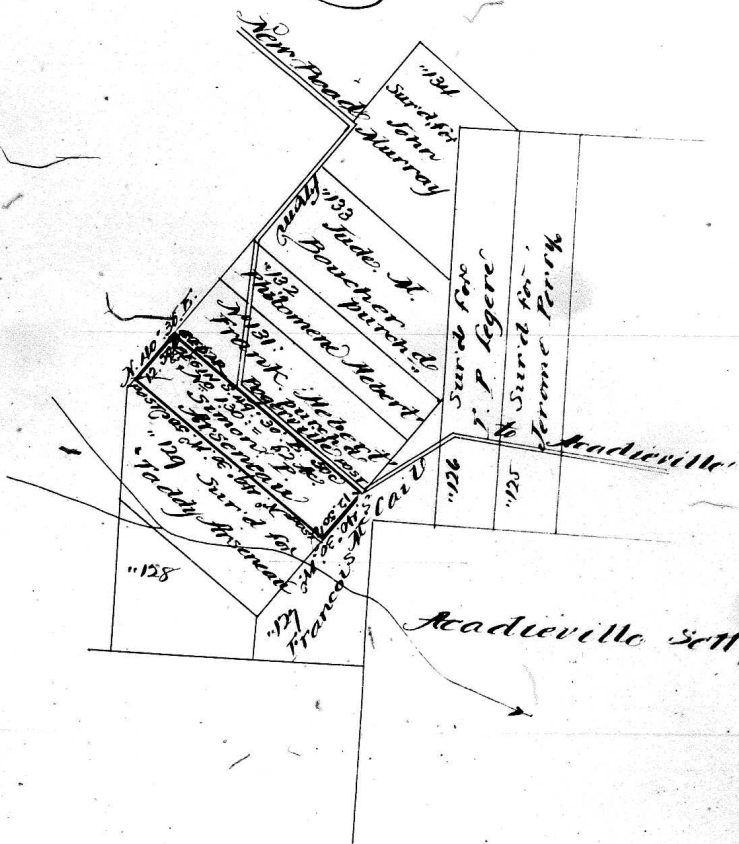 New Road
"134
Surd. for
John
Murray
"133
Jude. N.
Boucher
purch'd
"132
Philomene Hebert.
No 131.
Frank. Hebert
N. 40°. 30' E.
12.50
No 130. =
Simon P.
Arseneau
post
"129 Surd for
Taddy Arseneau
12.50
S. 40. 30. W.
"128
"127
Francois McCaie
"126
Surd for
J. P Legere
"125
Surd for
Jerome Perry
Acadieville
Acadieville Sett